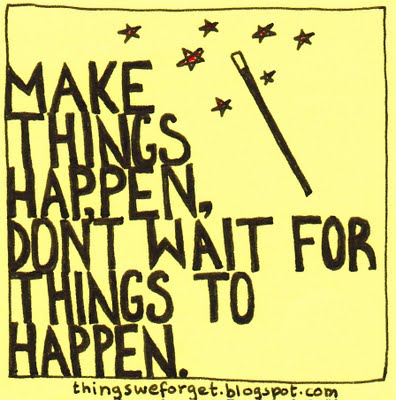 MAKE
THINGS
HAPPEN,
DON'T WAIT FOR
THINGS TO
HAPPEN.
thingsweforget.blogspot.com